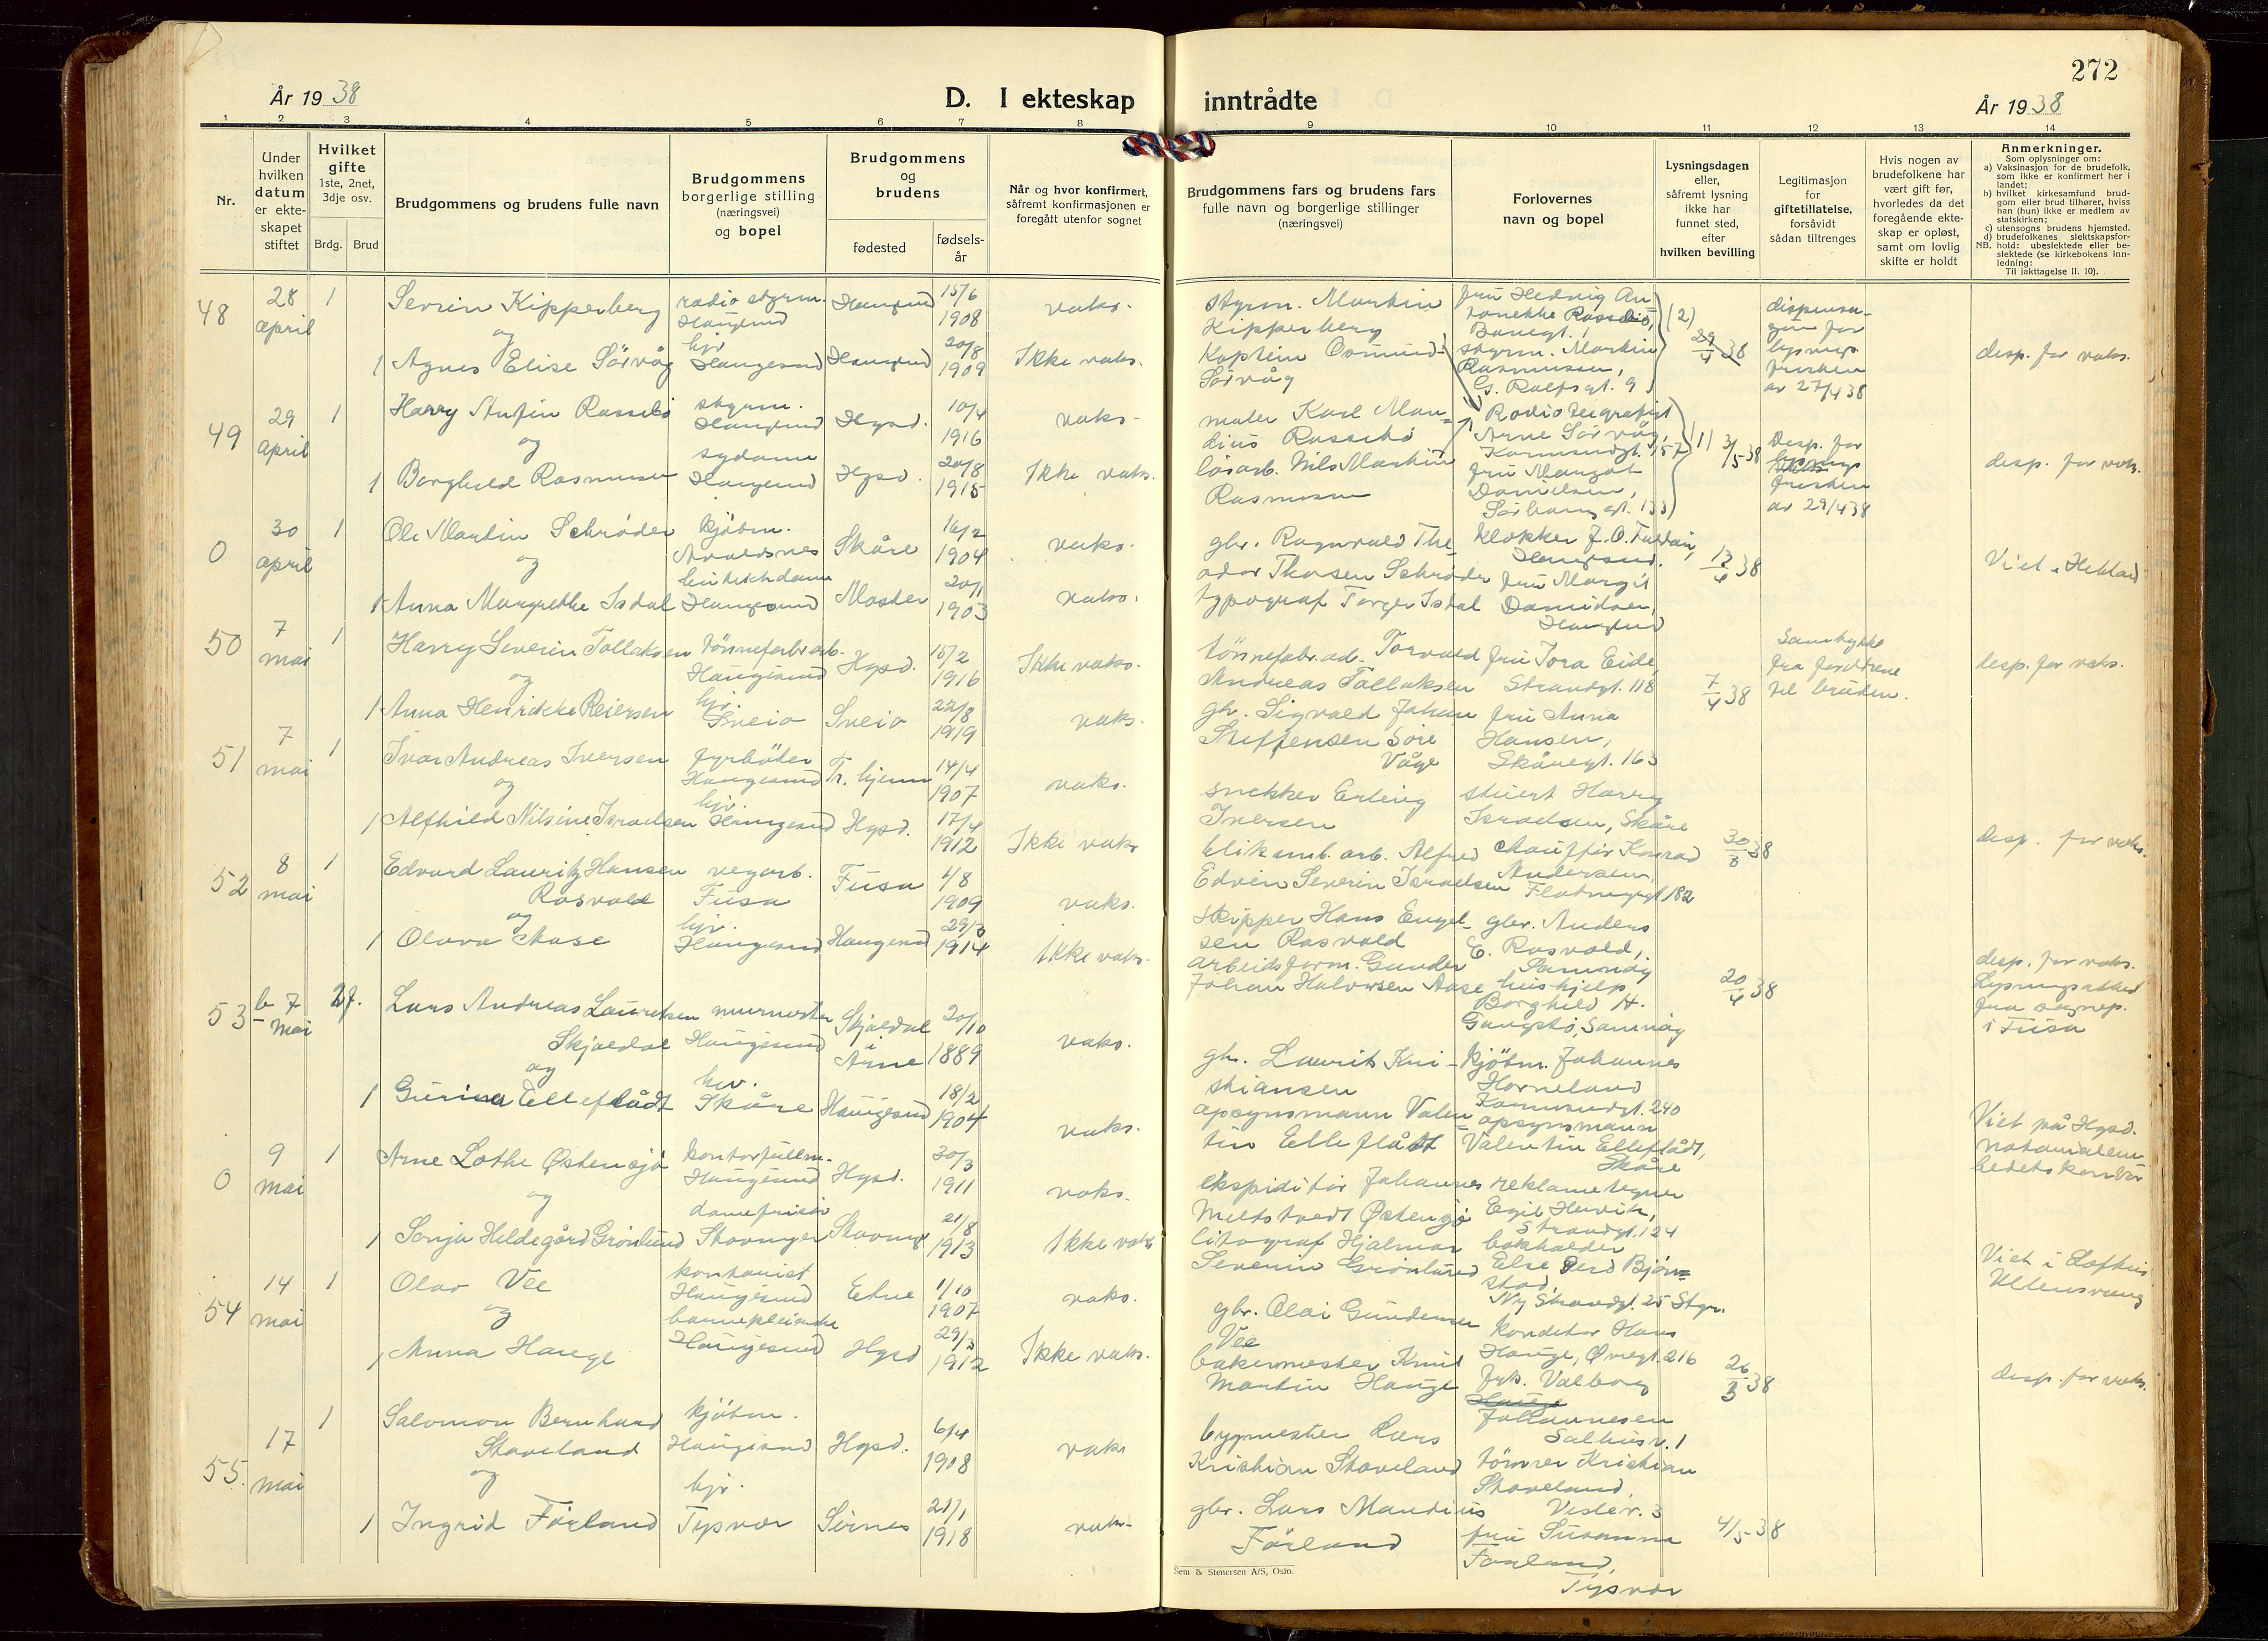 272
År 1938
D. I ekteskap inntrådte
År 1938
1 2 3 4 5 6 7 8 9 10 11 12 13 14
Nr.
Under hvilken datum er ekteskapet stiftet
Hvilket gifte
1ste, 2net, 3dje osv.
Brdg. Brud
Brudgommens og brudens fulle navn
Brudgommens borgerlige stilling (næringsvei) og bopel
Brudgommens og brudens
fødested
fødselsår
Når og hvor konfirmert, såfremt konfirmasjonen er foregått utenfor sognet
Brudgommens fars og brudens fars fulle navn og borgerlige stillinger (næringsvei)
Forlovernes navn og bopel
Lysningsdagen eller, såfremt lysning ikke har funnet sted, efter hvilken bevilling
Legitimasjon for giftetillatelse, forsåvidt sådan tiltrenges
Hvis nogen av brudefolkene har vært gift før, hvorledes da det foregående ekteskap er opløst, samt om lovlig skifte er holdt
Anmerkninger.
Som oplysninger om:
a) Vaksinasjon for de brudefolk, som ikke er konfirmert her i landet;
b) hvilket kirkesamfund brudgom eller brud tilhører, hviss han (hun) ikke er medlem av statskirken;
c) utensogns brudens hjemsted.
d) brudefolkenes slektskapsforhold: ubeslektede eller beslektede (se kirkebokens innledning:
NB. Til iakttagelse II. 10).
48 28 april 1 Severin Kipperberg radio styrm. Haugesund 15/6 1908 vaks.
og
1 Agnes Elise Sörvåg hjv. Haugesund Haugesund 20/8 1909 Ikke vaks.
styrm. Martin Kipperberg
Kaptein Osmund Sörvåg
styrm. Martin Rasmussen, G. Rolfsgt. 9
(2) 29/4 38
av 27/4 38
desp. for vaks.
49 29 april 1 Harry Anfin Rossebö styrm. Haugesund Hgsd. 10/4 1916 vaks.
og
1 Borghild Rasmussen sydame Haugesund Hgsd. 20/8 1915 Ikke vaks.
maler Karl Mandius Rossebö
lösarb. Nils Martin Rasmussen
Radiotelegrafist Arne Sörvåg, Karmsundgt. 157
fru Margot Danielsen,
(1) 3/5 38
Desp. for lysnings fristen av 29/4 38
desp. for vaks.
0 30 april 1 Ole Martin Schröder kjöbm. Avaldsnes Skåre 16/2 1904 vaks.
og
1 Anna Margrethe Isdal Haugesund Moster 20/1 1903 vaks.
gbr. Ragnvald Theodor Thosen Schröder
typograf Torger Isdal
Haugesund.
fru Margit Davidsen, Haugesund
38
50 7 mai 1 Harry Severin Tollaksen tönnefabr.arb. Haugesund Hgsd. 15/2 1916 Ikke vaks.
og
1 Anna Henrikke Reiersen hjv. Sveio Sveio 22/8 1919 vaks.
tönnefabr.arb. Torvald Andreas Tollaksen
gbr. Sigvald Johan Steffensen Söre Våge
fru Tora Eide, Strandgt. 118
fru Anna Hansen, Skåregt. 163
7/4 38
Samtykke fra foreldrene til bruden.
desp. for vaks.
51 7 mai 1 Ivar Andreas Iversen fyrböter Haugesund Tr. hjem 14/4 1907 vaks.
og
1 Alfhild Nilsine Israelsen hjv. Haugesund Hgsd. 17/4 1912 Ikke vaks
snekker Erling Iversen
blikemb. arb. Alfred Edvin Severin Israelsen
stuert Harry Israelsen, Skåre
chaufför Konrad Andersen, Flotmyrgt 182
38
desp. for vaks.
52 8 mai 1 Edvard Lauritz Hansen Rosvold vegarb. Fusa Fusa 1/8 1909 vaks.
og
1 Olava Aase hjv. Haugesund Haugesund 29/3 1914 Ikke vaks.
skipper Hans Engelsen Rosvold
arbeidsform. Gunder Johan Halvorsen Aase
gbr. Anders E. Rosvold, Samnöy
hushjelp Borghild H. Gangstö, Samnöy
20/4 38
desp. for vaks.
Lysningsattest fra sognep. i Fusa
53 7 mai Lars Andreas Lauritsen Skjoldal murmester Haugesund Skjoldal i Arne 20/10 1889 vaks.
og
1 Gurina Elleflådt hv. Skåre Haugesund 18/2 1904 vaks.
gbr. Laurits Kristiansen
opsynsmann Valentin Elleflådt
kjöbm. Johannes Horneland Karmsundgt. 240
opsynsmann Valentin Elleflådt, Skåre
Viet på Hgsd.
0 9 mai 1 Arne Lothe Østensjö kontorfullm. Haugesund Hgsd. 30/3 1911 vaks.
og
1 Sonja Hildegård Grönlund damefrisör Stavanger Stavanger 21/8 1913 Ikke vaks
ekspiditör Johannes Meltstvedt Østensjö
litograf Hjalmar Severin Grönlund
reklametegner Egil Hervik, Strandgt. 124
bokholder Else Gerd Björnstad, Ny Strandgt. 25 Stgr.
Viet i Lofthus Ullensvang
54 14 mai 1 Olav Vee kontorist Haugesund Etne 1/10 1907 vaks.
og
1 Anna Hauge barnepleierske Haugesund Hgsd 29/3 1912 Ikke vaks.
gbr. Olai Gundersen Vee
bakermester Knut Martin Hauge
konditor Hans Hauge, Øvregt. 216
frk. Valborg Johannesen Salhusv. 1
26/3 38
desp. for vaks.
55. 17 mai 1 Salomon Bernhard Stoveland kjöbm. Haugesund Hgsd. 6/4 1908 vaks
og
1 Ingrid Förland hjv. Tysvær 21/1 1918 vaks.
bygmester Lars Kristian Stoveland
gbr. Lars Mandius Förland
tömrer Kristian Stoveland, Veslev. 3
fru Susanna Förland, Tysvær
4/5 38
Sem & Stenersen A/S, Oslo.